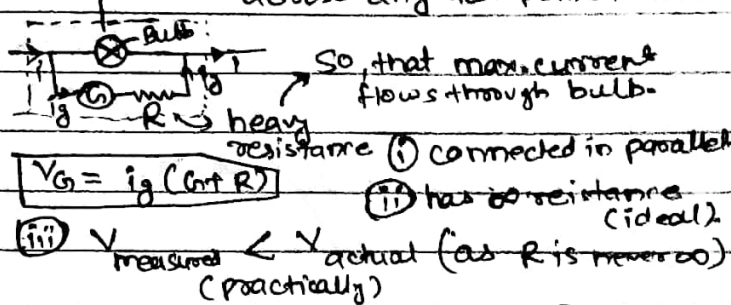 Bulb
i
i
ig
G
ig
R → heavy resistance
So, that max. current
flows through bulb.
(i) connected in parallel
VG = ig (G+R)
(ii) has ∞ reistanre
(ideal).
(iii) V measured < V actual (as R is never ∞)
(practically)